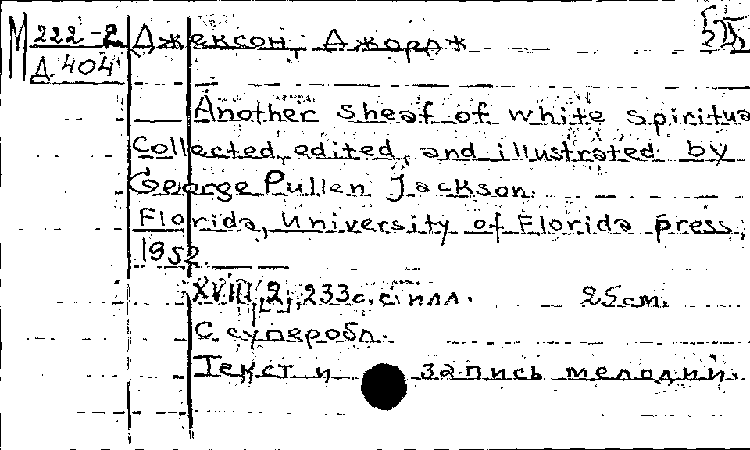 М 222-2 Джексон, Джордж
Д 404
Another sheaf of white spiritua
Collected, edited, and illustrated by
George Pullen Jackson.
Florida, University of Florida press,
1952.
XVIII, 2, 233 с. с илл. 25 см.
С суперобл.
Текст и запись мелодий.